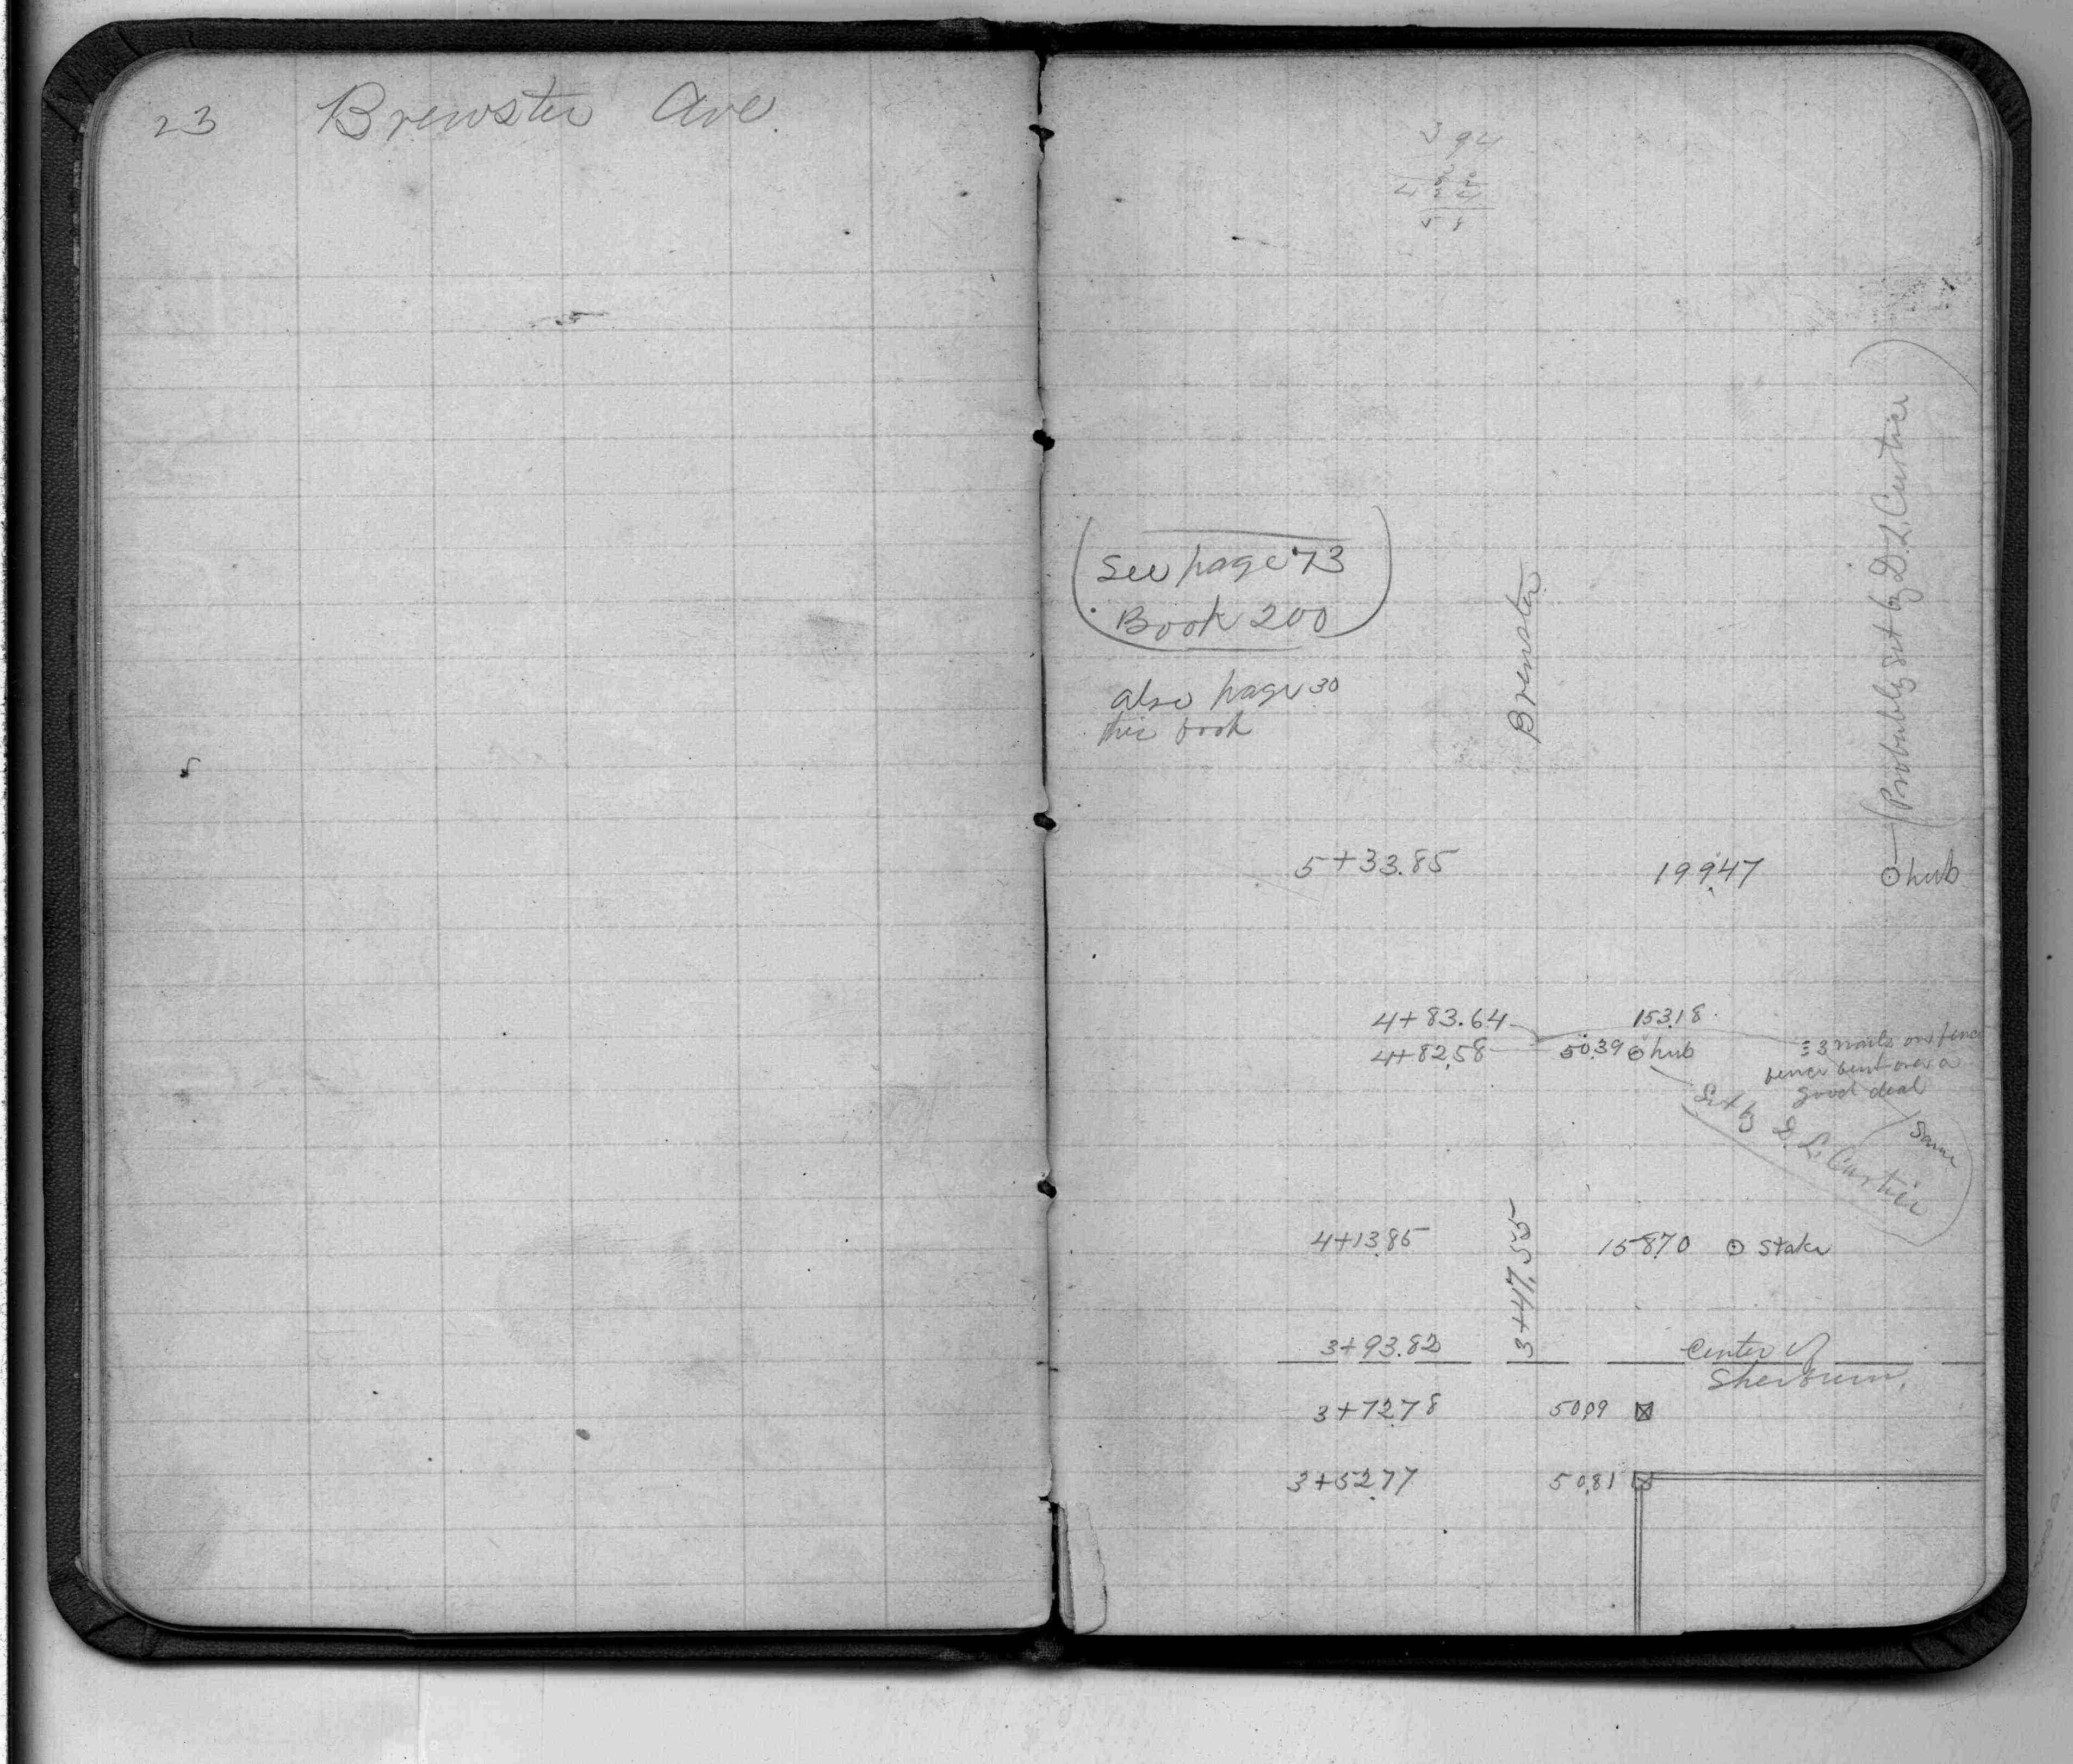 23 Brewster Ave.
394
58
See page 73
Book 200
also page 30
this book
Brewster
(Probably set by D. L. Curtice)
5+33.85 199.47 ⊙ hub
4+83.64 153.18
4+82.58 50.39 ⊙ hub
3 nails on fence
fence bent over a
good deal
Same
Set by D. L. Curtice
4+13.85 158.70 ⊙ Stake
3+47.55
3+93.82 Center of
Sherburn.
3+72.78 50.09
3+52.77 50.81